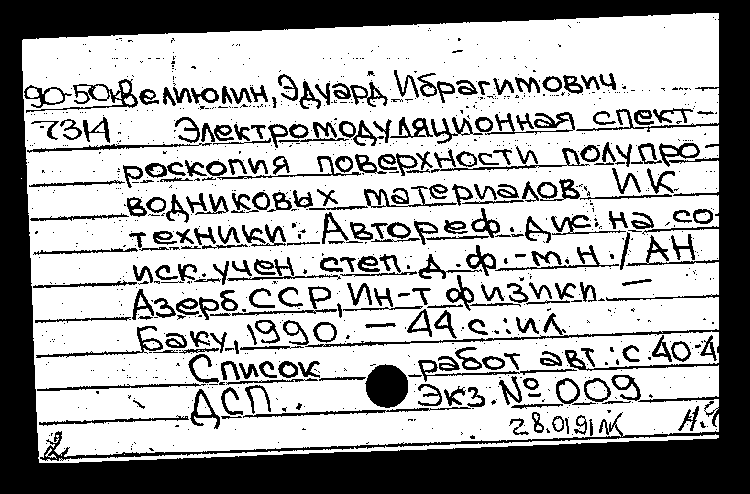 90-50к Велиюлин, Эдуард Ибрагимович.
7314 Электромодуляционная спект-
роскопия поверхности полупро-
водниковых материалов ИК
техники: Автореф. дис. на со-
иск. учен. степ. д. ф.-м. н. / АН
Азерб. ССР, Ин-т физики —
Баку, 1990. — 44 с.: ил
Список работ авт.: с. 40-4
ДСП.. Экз. № 009.
28.01.91
2